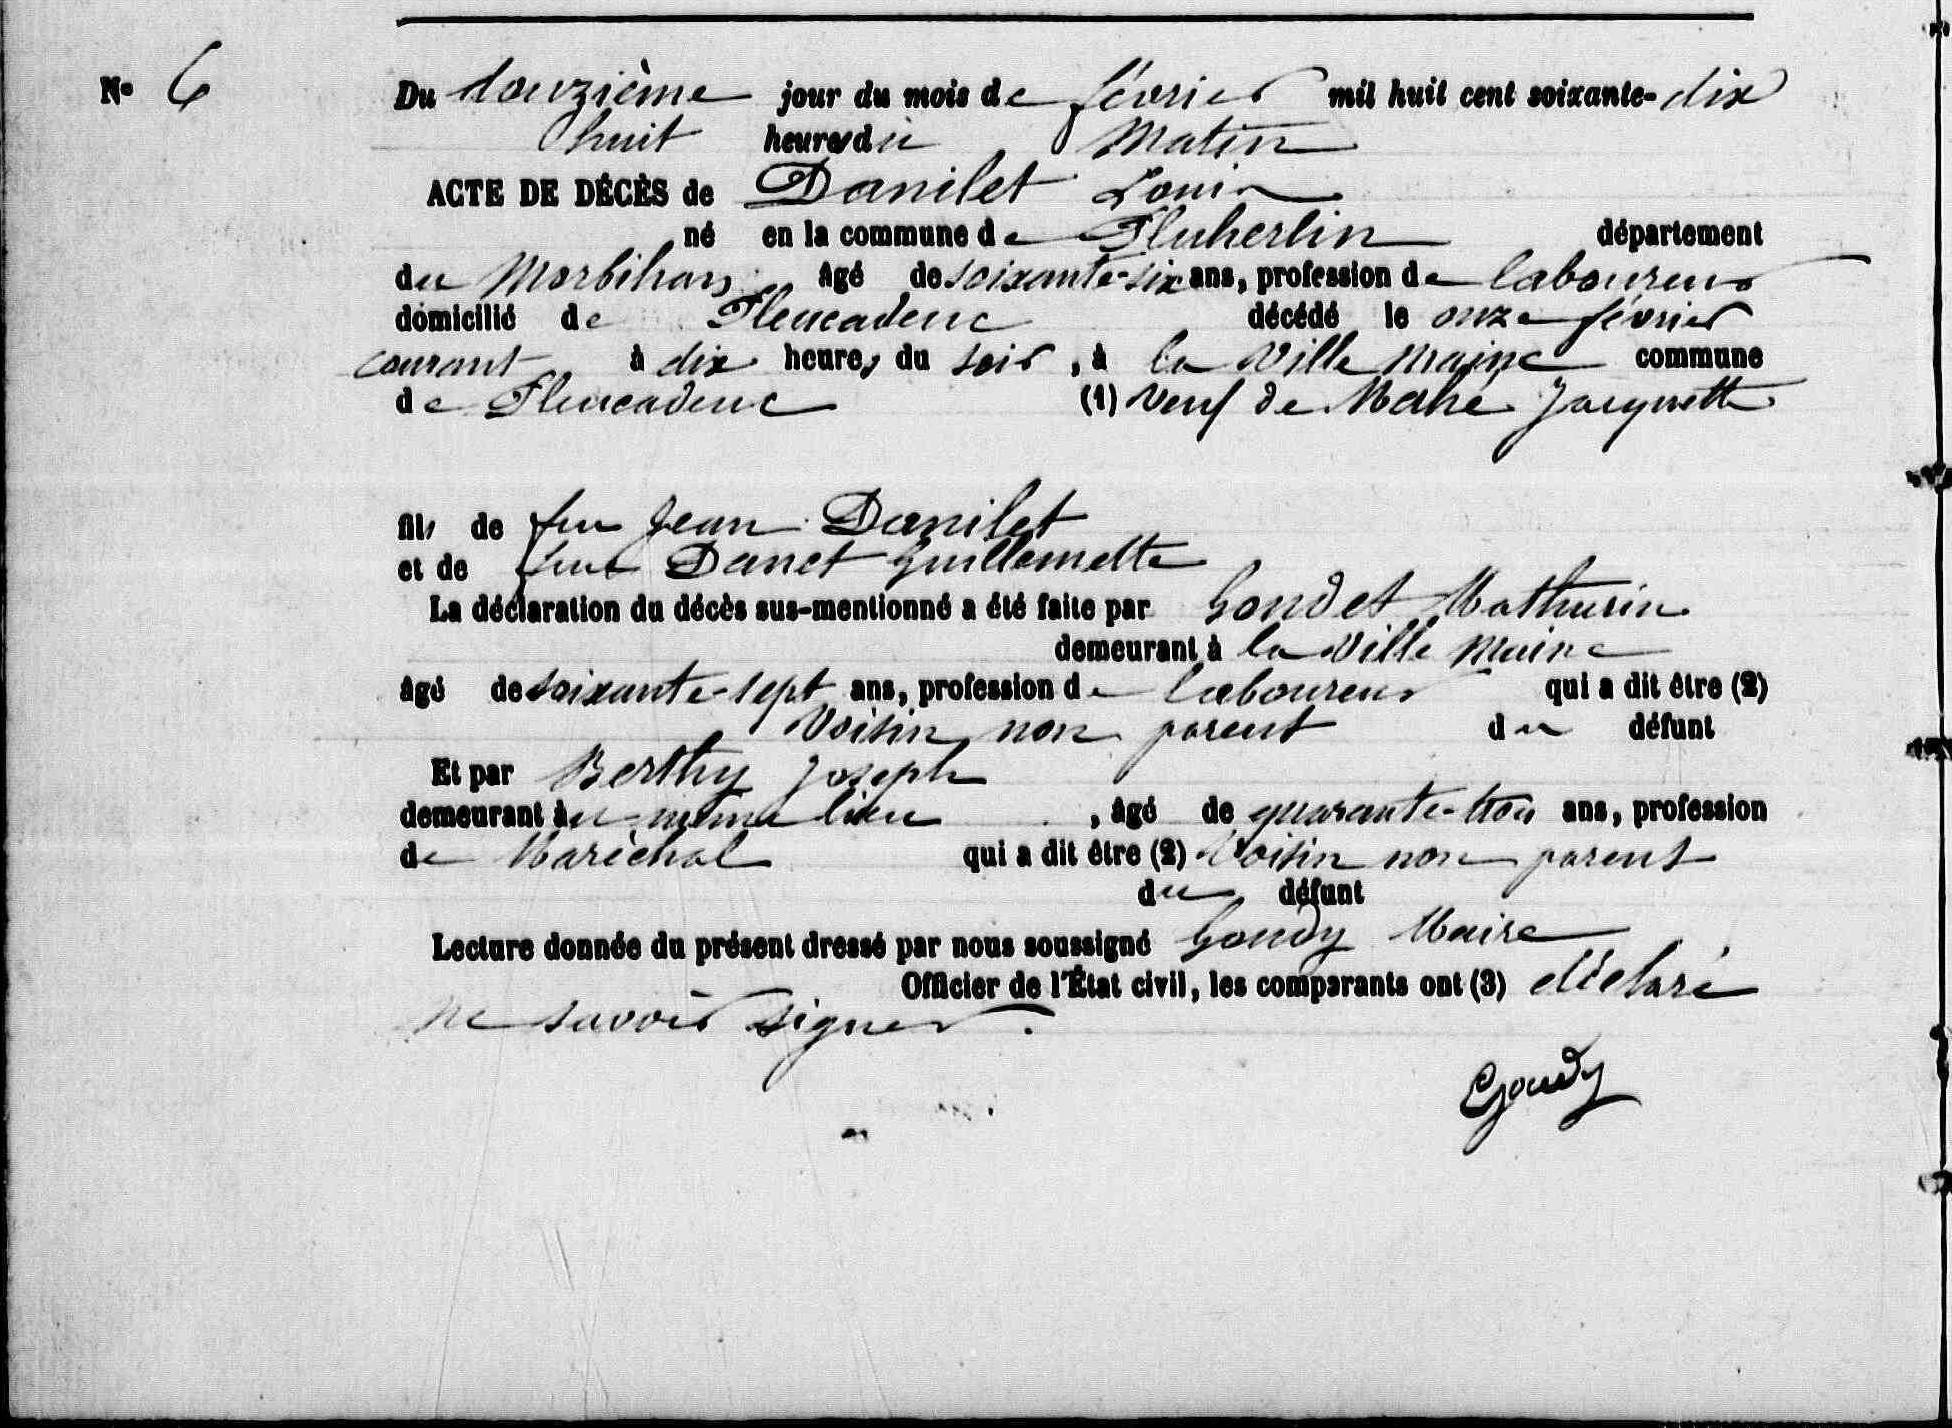 No 6
Du douzième jour du mois de février mil huit cent soixante-dix
huit heures du Matin
ACTE DE DÉCÈS de Danilet Louis
né en la commune de Pluherlin département
du Morbihan âgé de soixante-six ans, profession de laboureur
domicilié de Pleucadeuc décédé le onze février
courant à dix heures du soir, à la Ville Maine commune
de Pleucadeuc (1) Veuf de Mahé Jacquette
fils de feu Jean Danilet
et de feue Danet Guillemette
La déclaration du décès sus-mentionné a été faite par Gondet Mathurin
demeurant à la Ville Maine
âgé de soixante-sept ans, profession de laboureur qui a dit être (2)
Voisin non parent du défunt
Et par Berthy Joseph
demeurant au même lieu, âgé de quarante-trois ans, profession
de Maréchal qui a dit être (2) Voisin non parent
du défunt
Lecture donnée du présent dressé par nous soussigné Goudy Maire
Officier de l'État civil, les comparants ont (3) déclaré
ne savoir signer.
Goudy